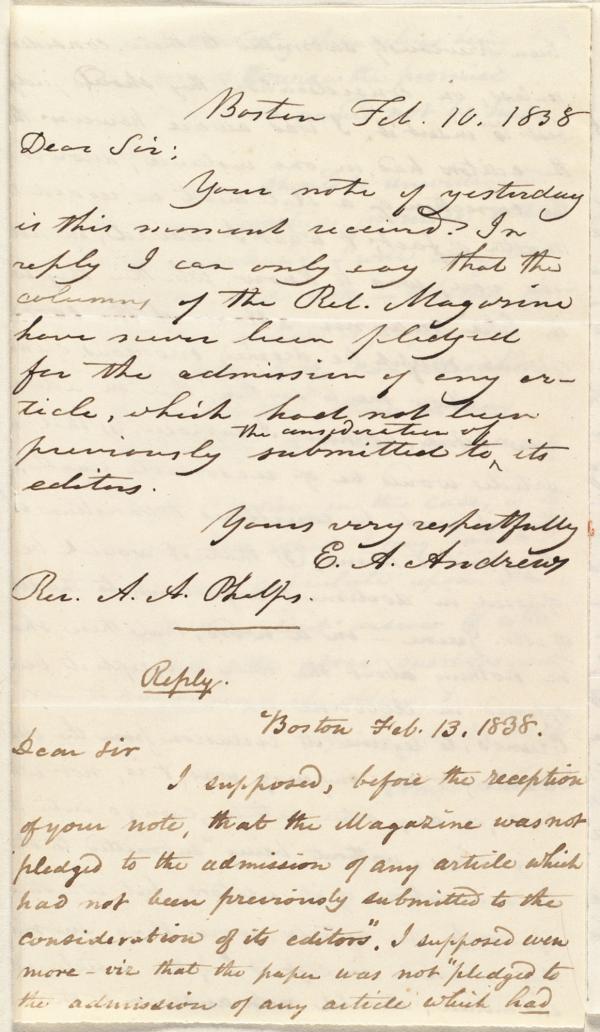 Boston Feb. 10. 1838
Dear Sir:
Your note of yesterday
is this moment received. In
reply I can only say that the
columns of the Rel. Magazine
have never been pledged
for the admission of any ar-
ticle, which had not been
the consideration of
previously submitted to ^ its
editors.
Yours very respectfully
E. A. Andrews
Rev. A. A. Phelps.
Reply.
Boston Feb. 13. 1838.
Dear Sir
I supposed, before the reception
of your note, that the Magazine was not
"pledged to the admission of any article which
had not been previously submitted to the
consideration of its editors". I supposed even
more - viz that the paper was not "pledged to
the admission of any article which had